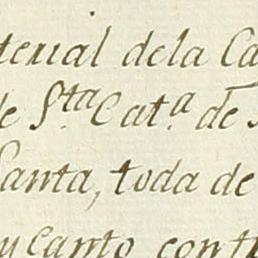 terial dela Ca
de S.ta Cat.a de
Santa, toda de
y Canto, con